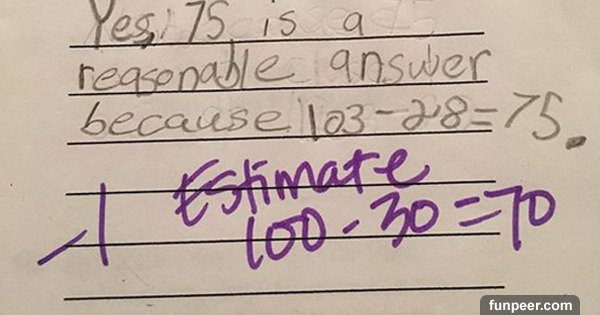 Yes, 75 is a
reasonable answer
because 103-28=75.
Estimate
-1 100-30=70
funpeer.com